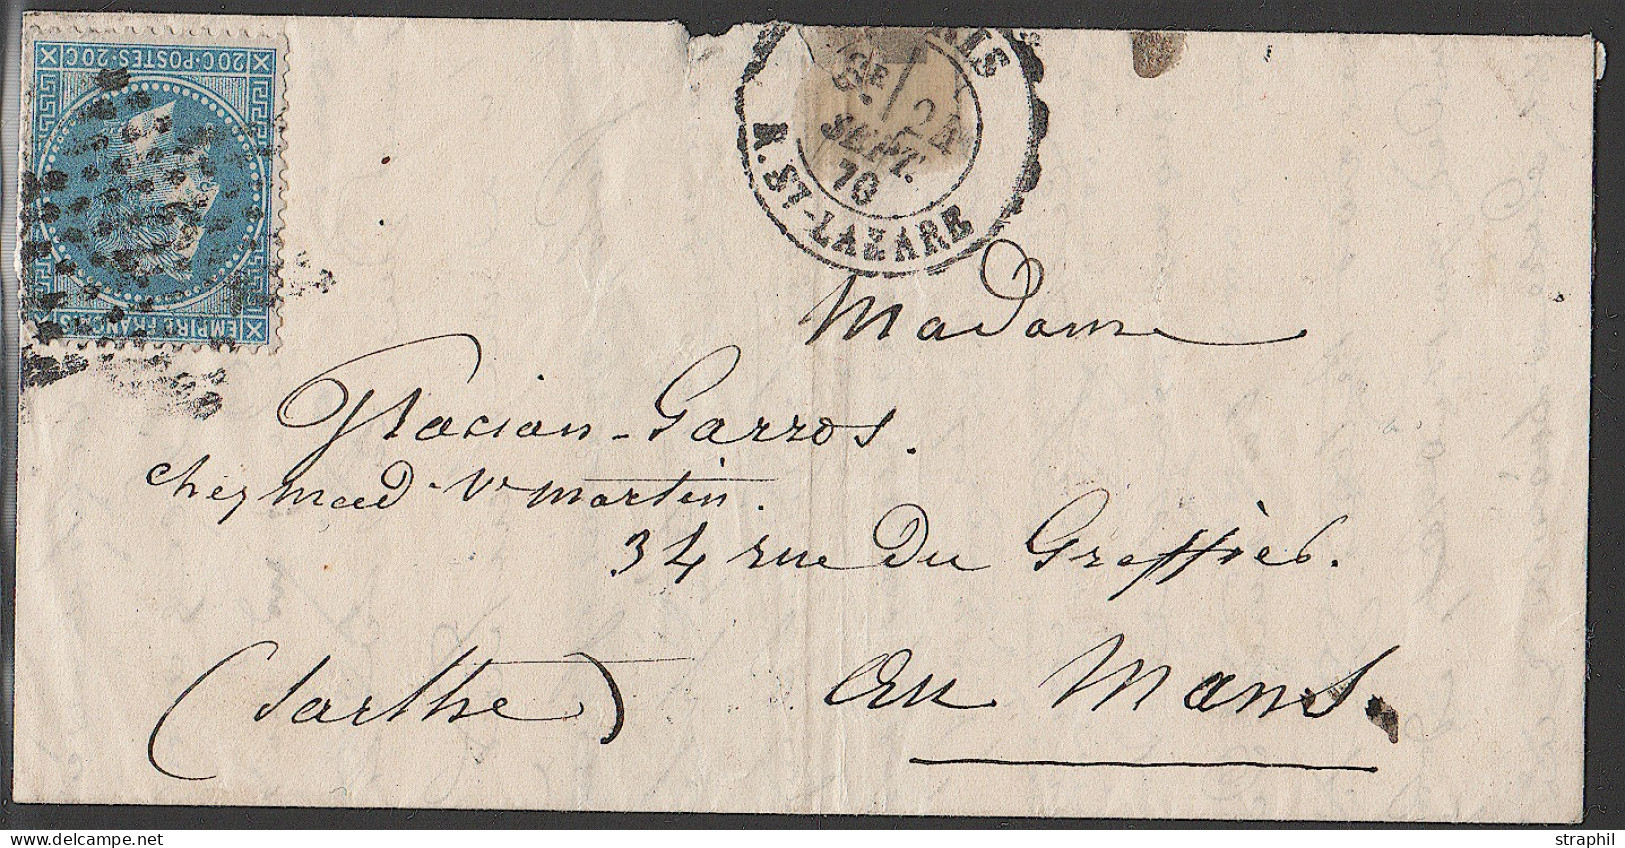 20C·POSTES·20C
EMPIRE FRANÇAIS
PARIS
5E 24
SEPT.
70
R. ST-LAZARE
Madame
Gracian-Garros.
chez mad. Ve martin.
34 rue du Greffier.
au Mans.
(Sarthe)
straphil